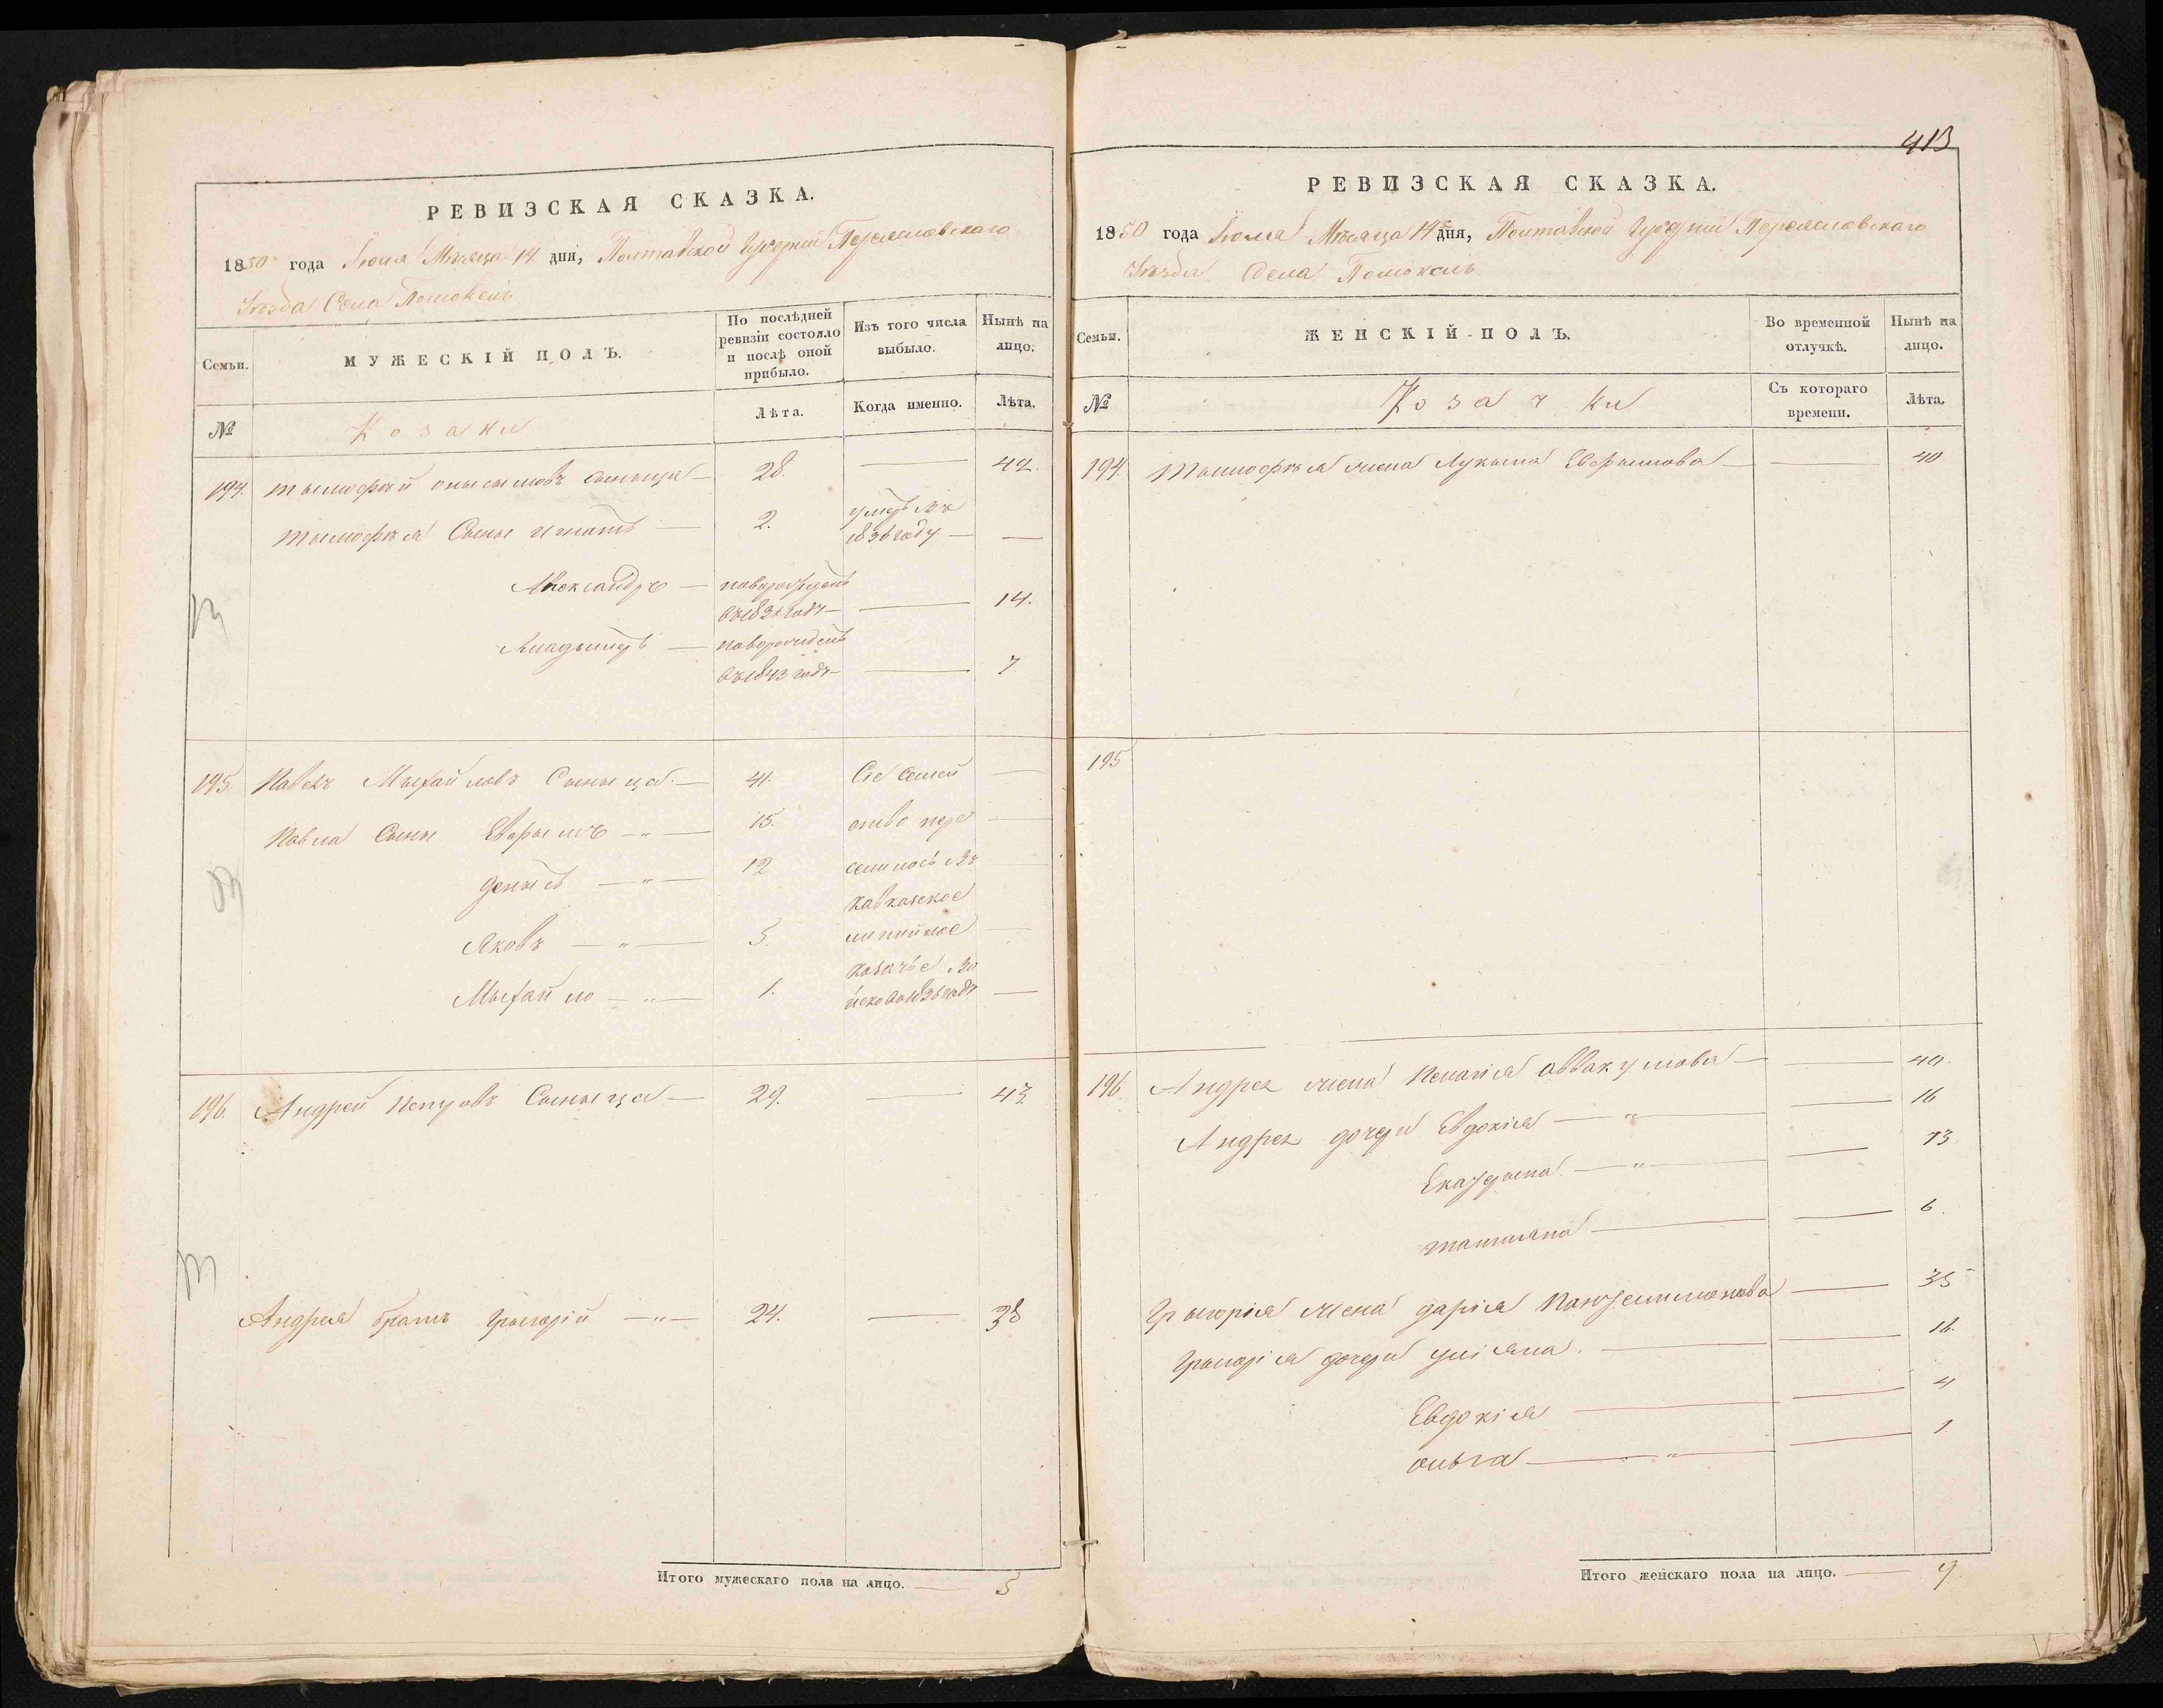 РЕВИЗСКАЯ СКАЗКА.
1850 года Июля Мѣсяца 14 дня, Полтавской Губерніи Переяславскаго
Уѣзда Села Помоклѣ
Семьи.
МУЖЕСКІЙ ПОЛЪ.
По послѣдней ревизіи состояло и послѣ оной прибыло.
Изъ того числа выбыло.
Нынѣ на лицо.
№
Козаки
Лѣта.
Когда именно.
Лѣта.
194. Тымофѣй Онысымовъ Сыныца — 28. — 42.
Тымофѣя Сыны Игнатъ — 2. умеръ въ
1836 году — —
Александръ — новорожденъ
въ 1836 годѣ — — 14.
Владымеръ — новорожденъ
въ 1843 годѣ — — 7.
195. Павелъ Мыхайловъ Сыныца — 41. Сіе Семей —
Павла Сыны Ефрымъ — " — 15. ство пере —
Денысъ — " — 12 селилось въ —
Кавказское
Яковъ — " — 5. линѣйное —
казачье во
Мыхайло — " — 1. йско въ 1836 годѣ —
196. Андрей Петровъ Сыныца — 29. — 43.
Андрея братъ Грыгорій — " — 24. — 38
Итого мужескаго пола на лицо. — 5
413
РЕВИЗСКАЯ СКАЗКА.
1850 года Июля Мѣсяца 14 дня, Полтавской Губерніи Переяславскаго
Уѣзда Села Помоклѣ
Семьи.
ЖЕНСКІЙ ПОЛЪ.
Во временной отлучкѣ.
Нынѣ на лицо.
№
Козачки
Съ котораго времени.
Лѣта.
194. Тымофѣя жена Лукына Ефрымова — — 40
195
196. Андрея жена Пелагія Аввакумова — — 40.
Андрея дочери Евдокія — " — — 16
Екатерына — " — — 13
Татіяна — — 6.
Грыгорія жена Дарія Пантелимонова — 35
Грыгорія дочери Уліяна. — — 16.
Евдокія — — 4
Ольга — " — — 1
Итого женскаго пола на лицо. — 9